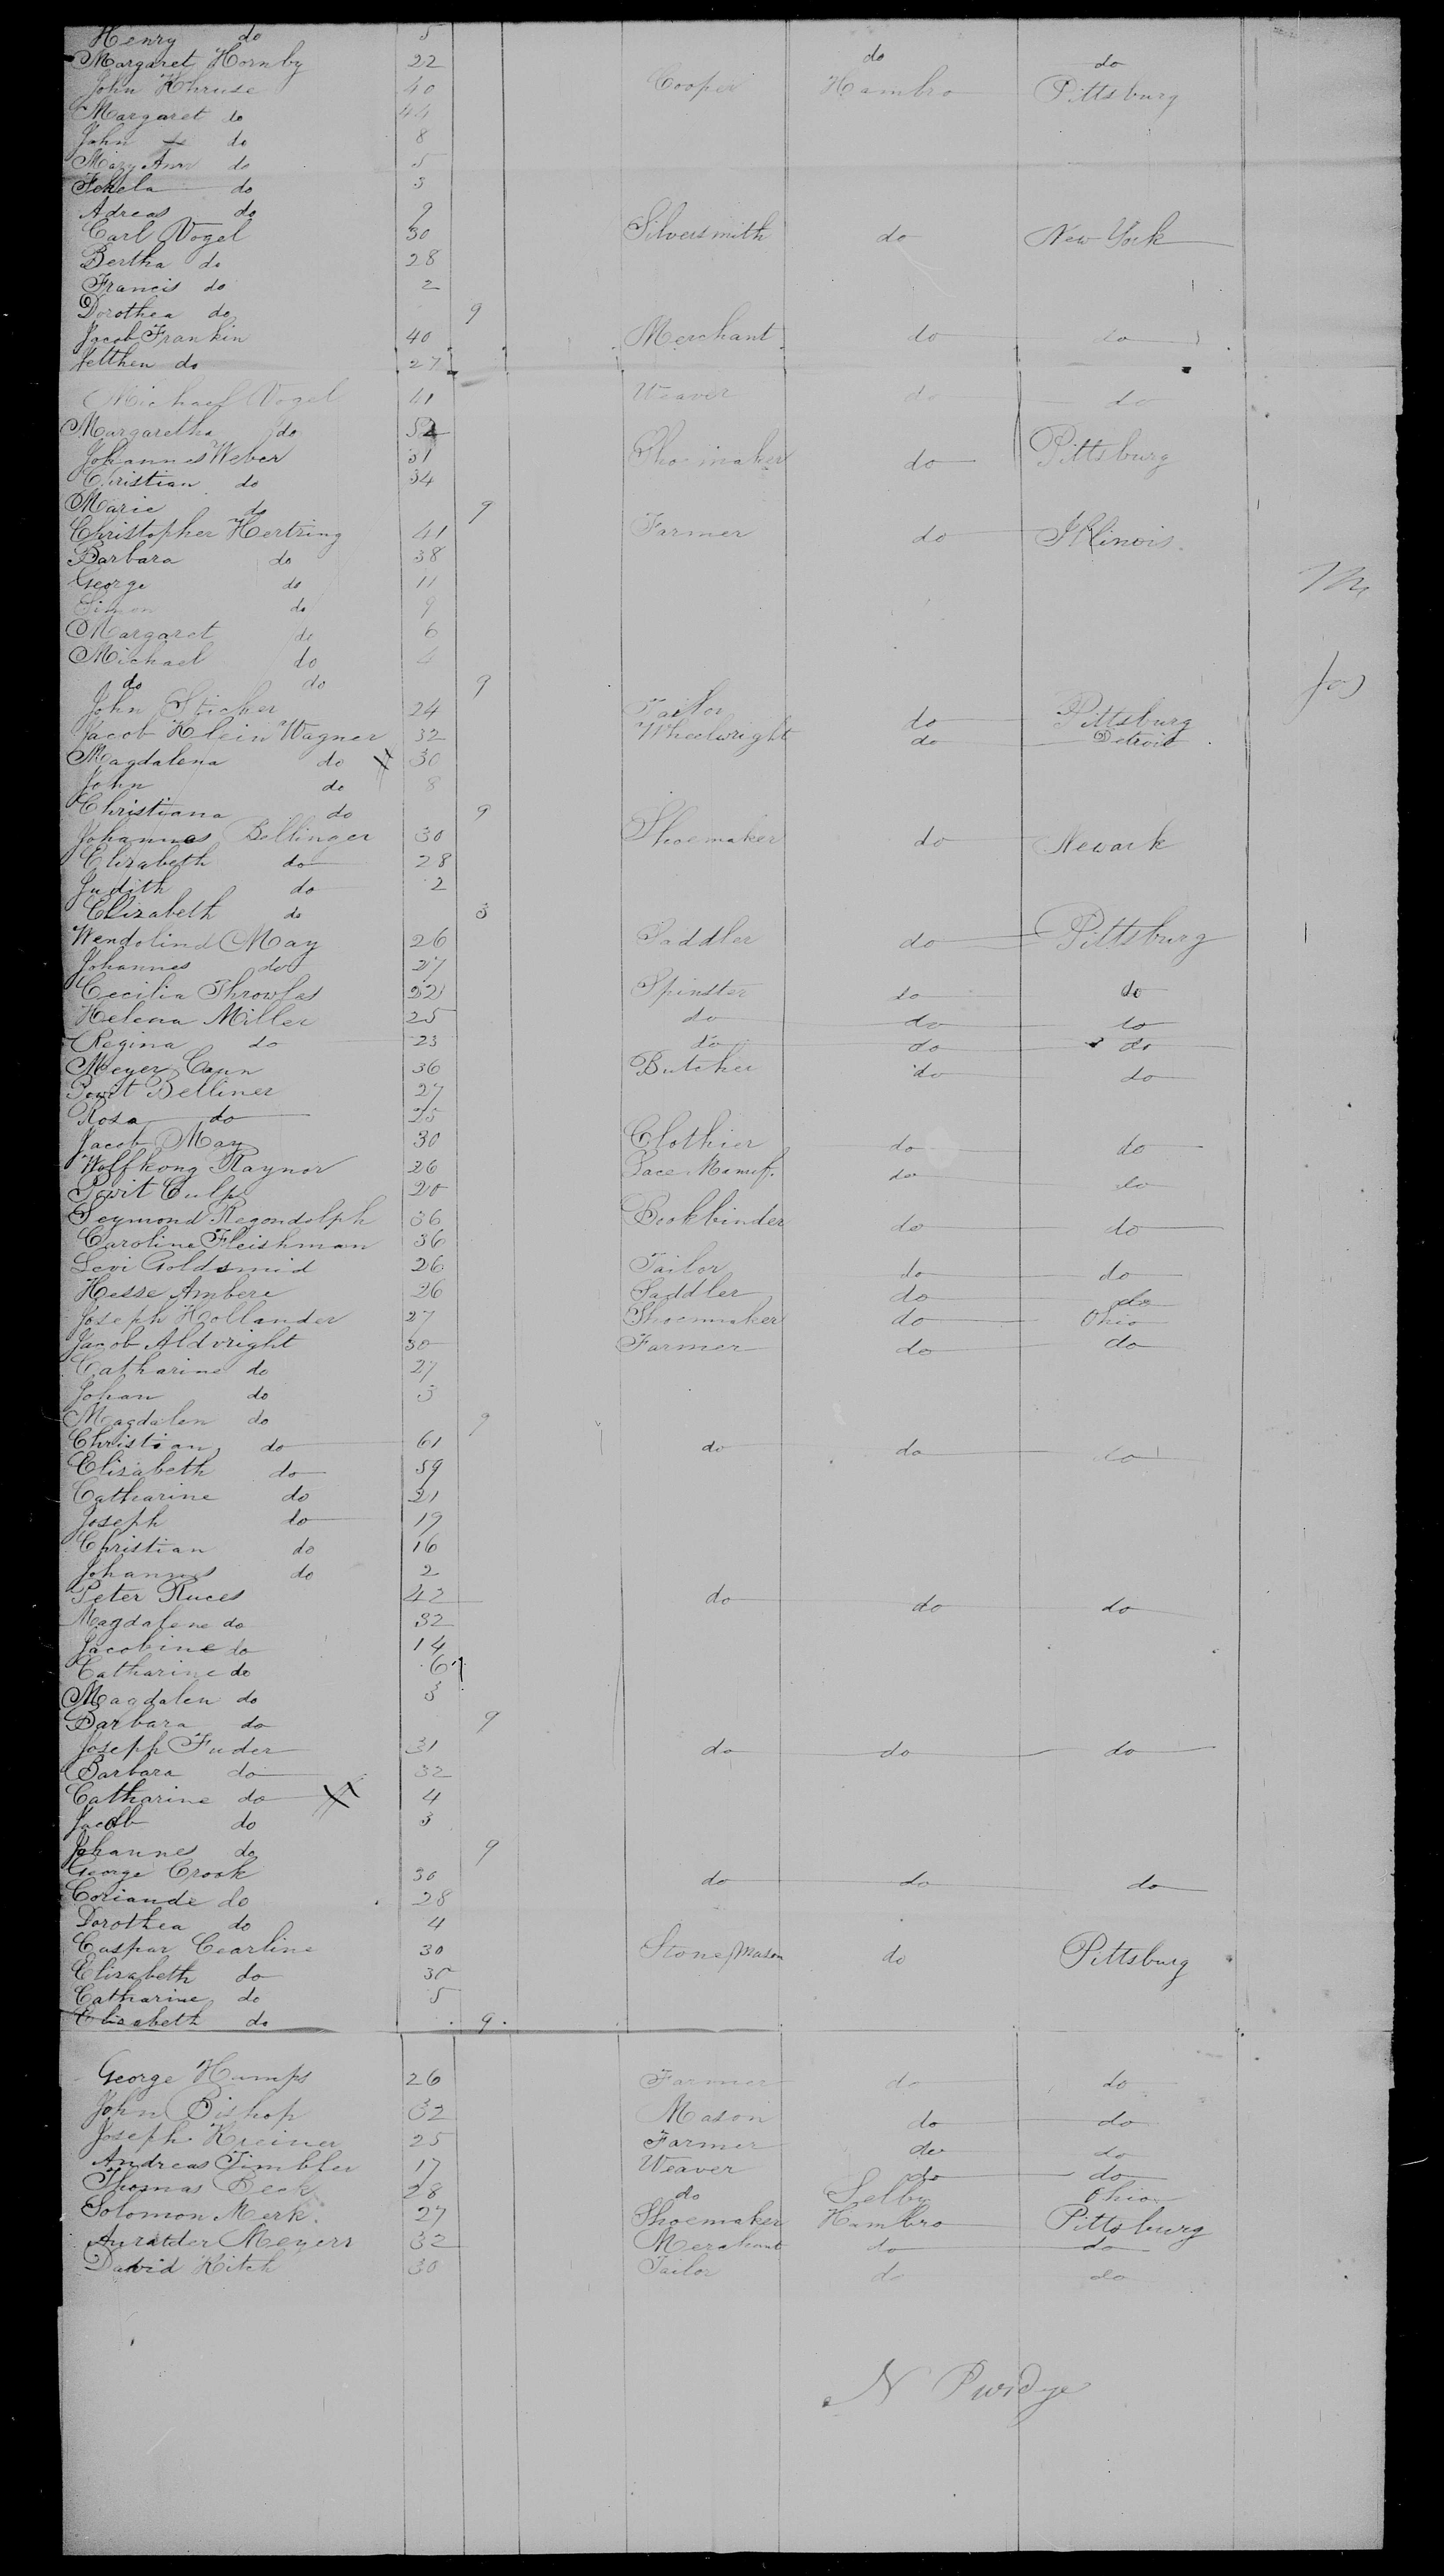 Henry do 5
Margaret Hornby 22 do do
John Khruse 40 Cooper Hambro Pittsburg
Margaret do 44
John do 8
Mary Ann do 5
Tekela do 3
Adreas do 9
Carl Vogel 30 Silversmith do New York
Bertha do 28
Francis do 2
Dorothea do 9
Jacob Frankin 40 Merchant do do
Jetthen do 27
Michael Vogel 41 Weaver do do
Margaretha do 52
Johannes Weber 31 Shoemaker do Pittsburg
Christian do 34
Marie do 9
Christopher Hertring 41 Farmer do Illinois.
Barbara do 38
George do 11
Simon do 9
Margaret do 6
Michael do 4
do do 9
John Sticher 24 Tailor do Pittsburg
Jacob Klein Wagner 32 Wheelwright do Detroit
Magdalena do 30
John do 8
Christiana do 9
Johannes Bellinger 30 Shoemaker do Newark
Elizabeth do 28
Judith do 2
Elizabeth do 3
Wendolind May 26 Saddler do Pittsburg
Johannes do 27
Cecilia Throwlas 22 Spinster do do
Helena Miller 25 do do do
Regina do 23 do do do
Meyer Cann 36 Butcher do do
Bellines 27
Rosa do 25
Jacob May 30 Clothier do do
Wolfkong Raynor 26 Lace Manuf. do do
Culp 20
Seymond Regondolph 36 Bookbinder do do
Caroline Fleishman 36
Levi Goldsmid 26 Tailor do do
Hesse Ambere 26 Saddler do do
Joseph Hollander 27 Shoemaker do Ohio
Jacob Aldvright 30 Farmer do do
Catharine do 27
Johan do 3
Magdalen do 9
Christian do 61 do do do
Elisabeth do 59
Catharine do 21
Joseph do 19
Christian do 16
Johannes do 2
Peter Ruces 42 do do do
Magdalene do 32
Jacobine do 14
Catharine do 6
Magdalen do 3
Barbara do 9
Joseph Fuder 31 do do do
Barbara do 32
Catharine do 4
Jacob do 3
Johannes do 9
George Crook 30 do do do
Coriande do 28
Dorothea do 4
Caspar Cearline 30 Stone Mason do Pittsburg
Elizabeth do 30
Catharine do 5
Elisabeth do 9
George Humps 26 Farmer do do
John Bishop 32 Mason do do
Joseph Kreiner 25 Farmer do do
Andreas Timbler 17 Weaver do do
Thomas Beck 28 do Selby Ohio
Solomon Merk. 27 Shoemaker Hambro Pittsburg
Meyers 32 Merchant do do
David Kitch 30 Tailor do do
N Purdye